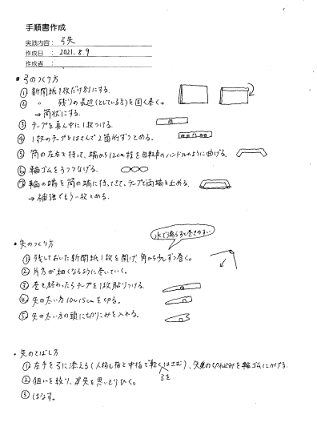 手順書作成
実践内容：弓矢
作成日：2021.8.9
作成者：
・弓のつくり方
① 新聞紙1枚だけ別にする。
② 〃 残りの長辺(としている方)を固く巻く。
→筒状にする。
③ テープを真ん中に1枚つける。
④ 1枚のテープをはさんで2箇所ずつとめる。
⑤ 筒の左右を持って、端から12cm程を自転車のハンドルのように曲げる。
⑥ 輪ゴムを3つつなげる。
⑦ 輪の端を筒の端に持ってきて、テープで両端を止める。
→補強でもう一枚とめる。
水で濡らすと巻きやすい
・矢のつくり方
① 残しておいた新聞紙1枚を開げ、角から少しずつ巻く。
② 片方が細くなるように巻いていく。
③ 巻き終わったらテープを1枚貼りつける。
④ 矢の太い方10cm〜15cmを切る。
⑤ 矢の太い方の頭に切りこみを入れる。
・矢のとばし方
① 左手を弓に添える(人指し指と中指で軽くはさむ)、矢の切れ込みを輪ゴムにかける。
弓を
② 狙いを絞り、矢を思いきりひく。
③ はなす。